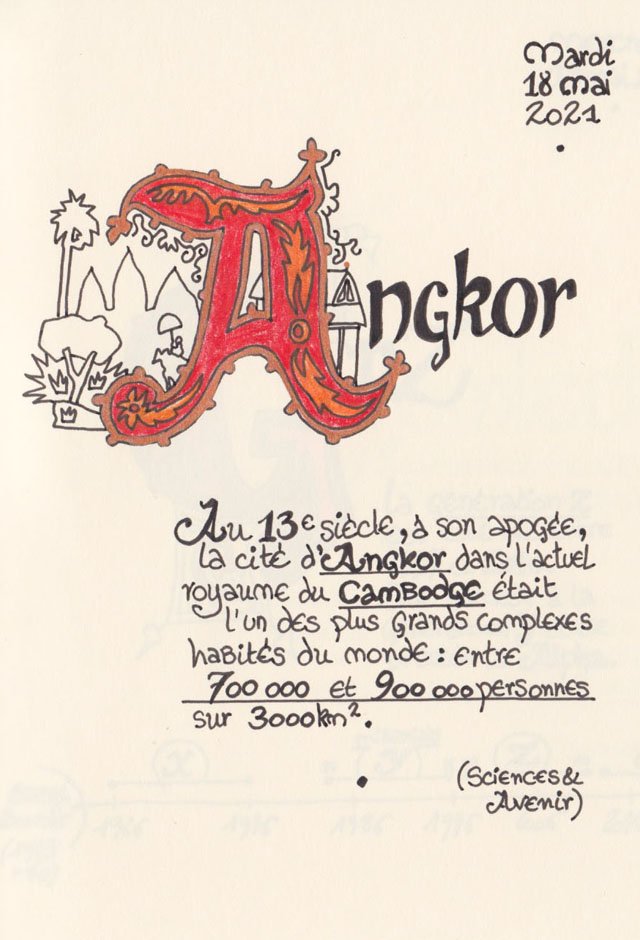 Mardi
18 Mai
2021
Angkor
Au 13e siècle, à son apogée,
la cité d'Angkor dans l'actuel
royaume du Cambodge était
l'un des plus grands complexes
habités du monde : entre
700 000 et 900 000 personnes
sur 3000 km².
(Sciences &
Avenir)
La génération Z
Alpha
X
Y
Z
1966
1976
1986
1996